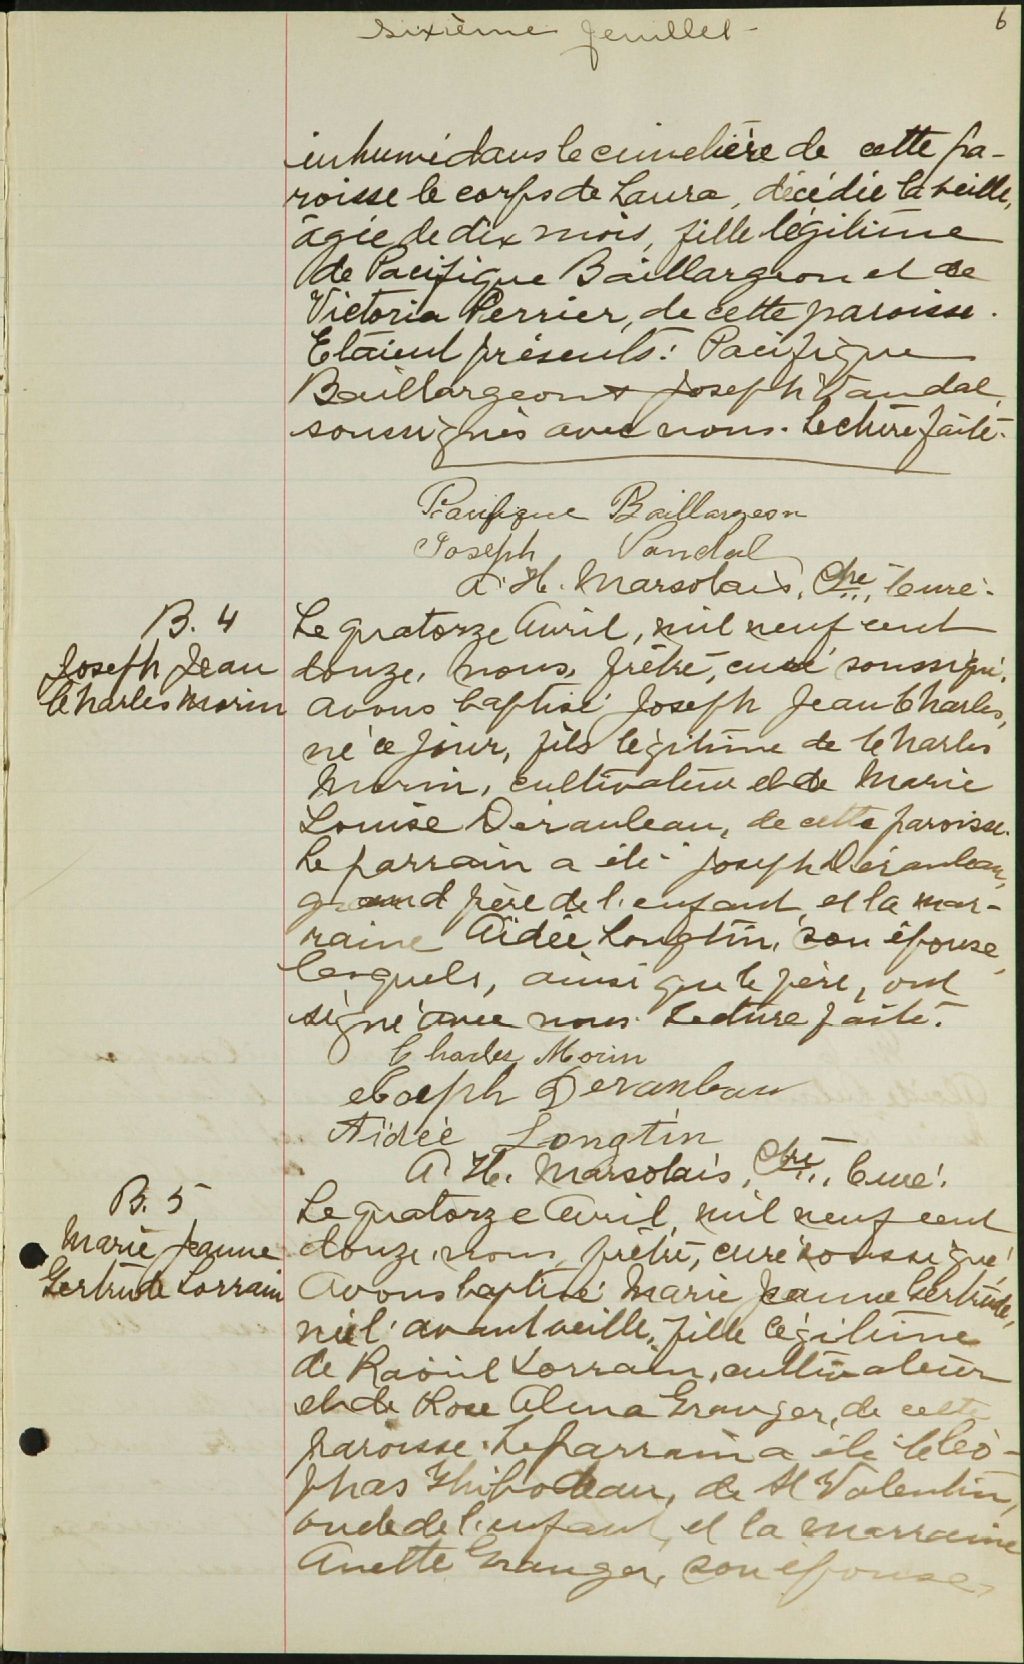 sixième feuillet -
6
inhumé dans le cimetière de cette pa-
roisse le corps de Laura, décédée la veille,
âgée de dix mois, fille légitime
de Pacifique Baillargeon et de
Victoria Perrier, de cette paroisse.
Etaient présents: Pacifique
Baillargeon & Joseph Vandal,
soussignés avec nous. Lecture faite.
Pacifique Baillargeon
Joseph Vandal
A. H. Marsolais, Ptre, Curé.
B. 4
Joseph Jean
Charles Morin
Le quatorze Avril, mil neuf cent
douze, nous, prêtre, curé soussigné,
avons baptisé Joseph Jean Charles,
né ce jour, fils légitime de Charles
Morin, cultivateur et de Marie
Louise Deranleau, de cette paroisse.
Le parrain a été Joseph Deranleau,
grand père de l'enfant, et la mar-
raine Aïdée Longtin, son épouse,
lesquels, ainsi que le père, ont
signé avec nous. Lecture faite.
Charles Morin
Joseph Deranleau
Aïdée Longtin
A. H. Marsolais, Ptre, Curé.
B. 5
Marie Jeanne
Gertrude Lorrain
Le quatorze Avril, mil neuf cent
douze, nous, prêtre, curé soussigné
avons baptisé Marie Jeanne Gertrude,
née l'avant veille, fille légitime
de Raoul Lorrain, cultivateur
et de Rose Alma Granger, de cette
paroisse. Le parrain a été Cléo-
phas Thibodeau, de St Valentin,
oncle de l'enfant, et la marraine
Anette Granger, son épouse,